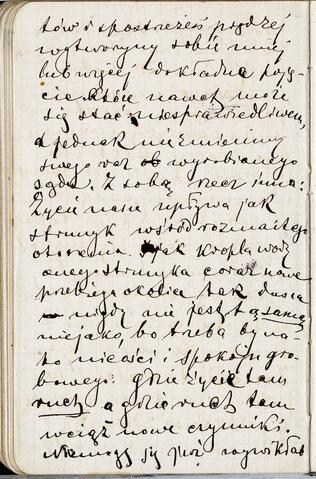 tów i spostrzeżeń prędzej
wytworzymy sobie mniej
lub więcej dokładne poję-
cie które nawet może
się stać niesprawiedliwem,
a jednak nie zmienimy
swego raz wyrobionego
sądu. Z sobą rzecz inna:
Życie nasze upływa jak
strumyk wśród rozmaitego
otoczenia. Jak kropla wody
onego strumyka coraz nowe
przebiega okolice tak dusza
nigdy nie jest tą samą
niejako, bo trzeba by na-
to nicości i spokoju gro-
bowego: gdzie życie tam
ruch a gdzie ruch tam
wciąż nowe czynniki.
się już